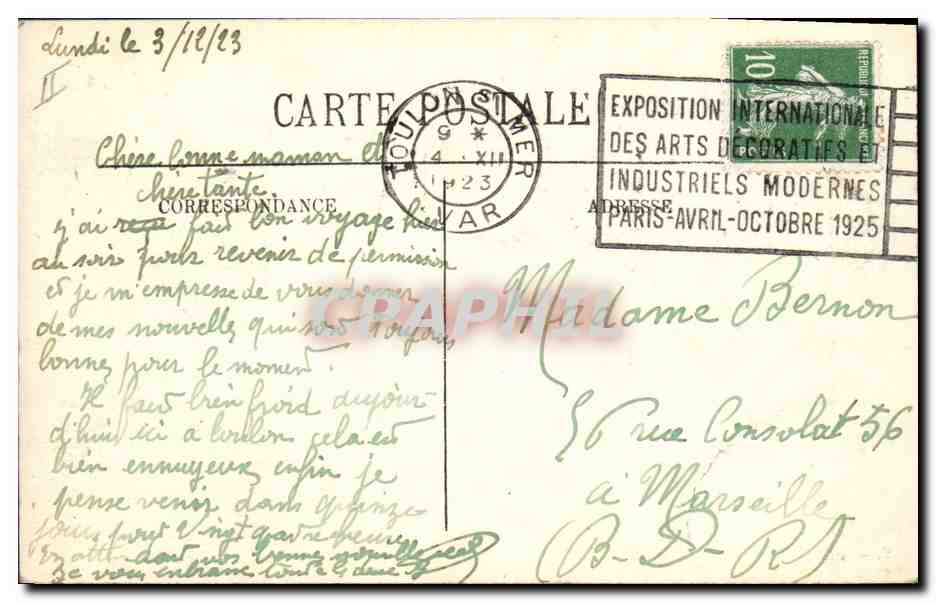 Lundi le 3/12/23
II
CARTE POSTALE
TOULON S MER
9 *
4 . XII
1923
VAR
EXPOSITION INTERNATIONALE
DES ARTS DECORATIFS ET
INDUSTRIELS MODERNES
PARIS-AVRIL-OCTOBRE 1925
10
CORRESPONDANCE
ADRESSE
Chère bonne maman et
chère tante
j'ai fait bon voyage hier
au soir pour revenir de permission
et je m'empresse de vous donner
de mes nouvelles qui sont toujours
bonnes pour le moment.
Il fait bien froid aujour-
d'hui ici à toulon cela est
bien ennuyeux enfin je
pense venir dans quinze
jours pour vingt quatre heures
En attendant vos bonnes nouvelles
Je vous embrasse toute les deux
Madame Bernon
56 rue Consolat 56
à Marseille
(B-D-R)
CRAPHIL